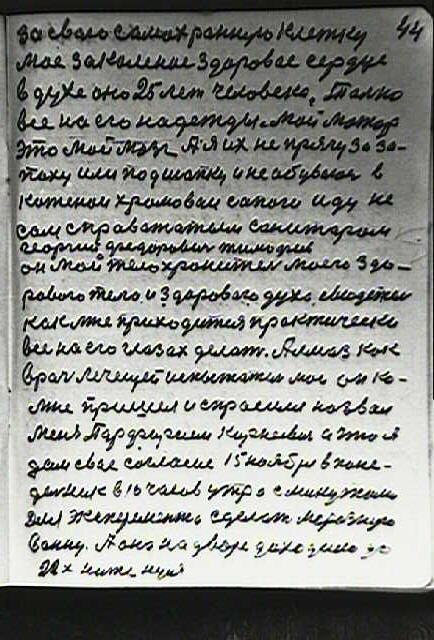 44
за свою самохранную клетку
мое закаленое здоровое сердце
в духе оно 25 лет человека, Только
все на его надежды. Мой мотор
это мой мозг А я их не прячу за за-
поху или под шапку и не обуваюсь в
кожаном хромовом сапоги иду не
сам с провожатым санитаром
георгий федорович тимофеев
он мой телохранитель моего здо-
рового тела и здорового духа, свидетель
как мне приходится практически
все на его глазах делать. Алмаз как
врач лечущей мое он ко
мне пришел и спросил назвал
мень Парфирием Корнеевич и это я
дал свое согласие 15 ноября в поне-
дельник в 10 часов утра с минутами
для эксперимента сделать морозную
ванну. А оно на дворе доходило до
22х ниже нуля